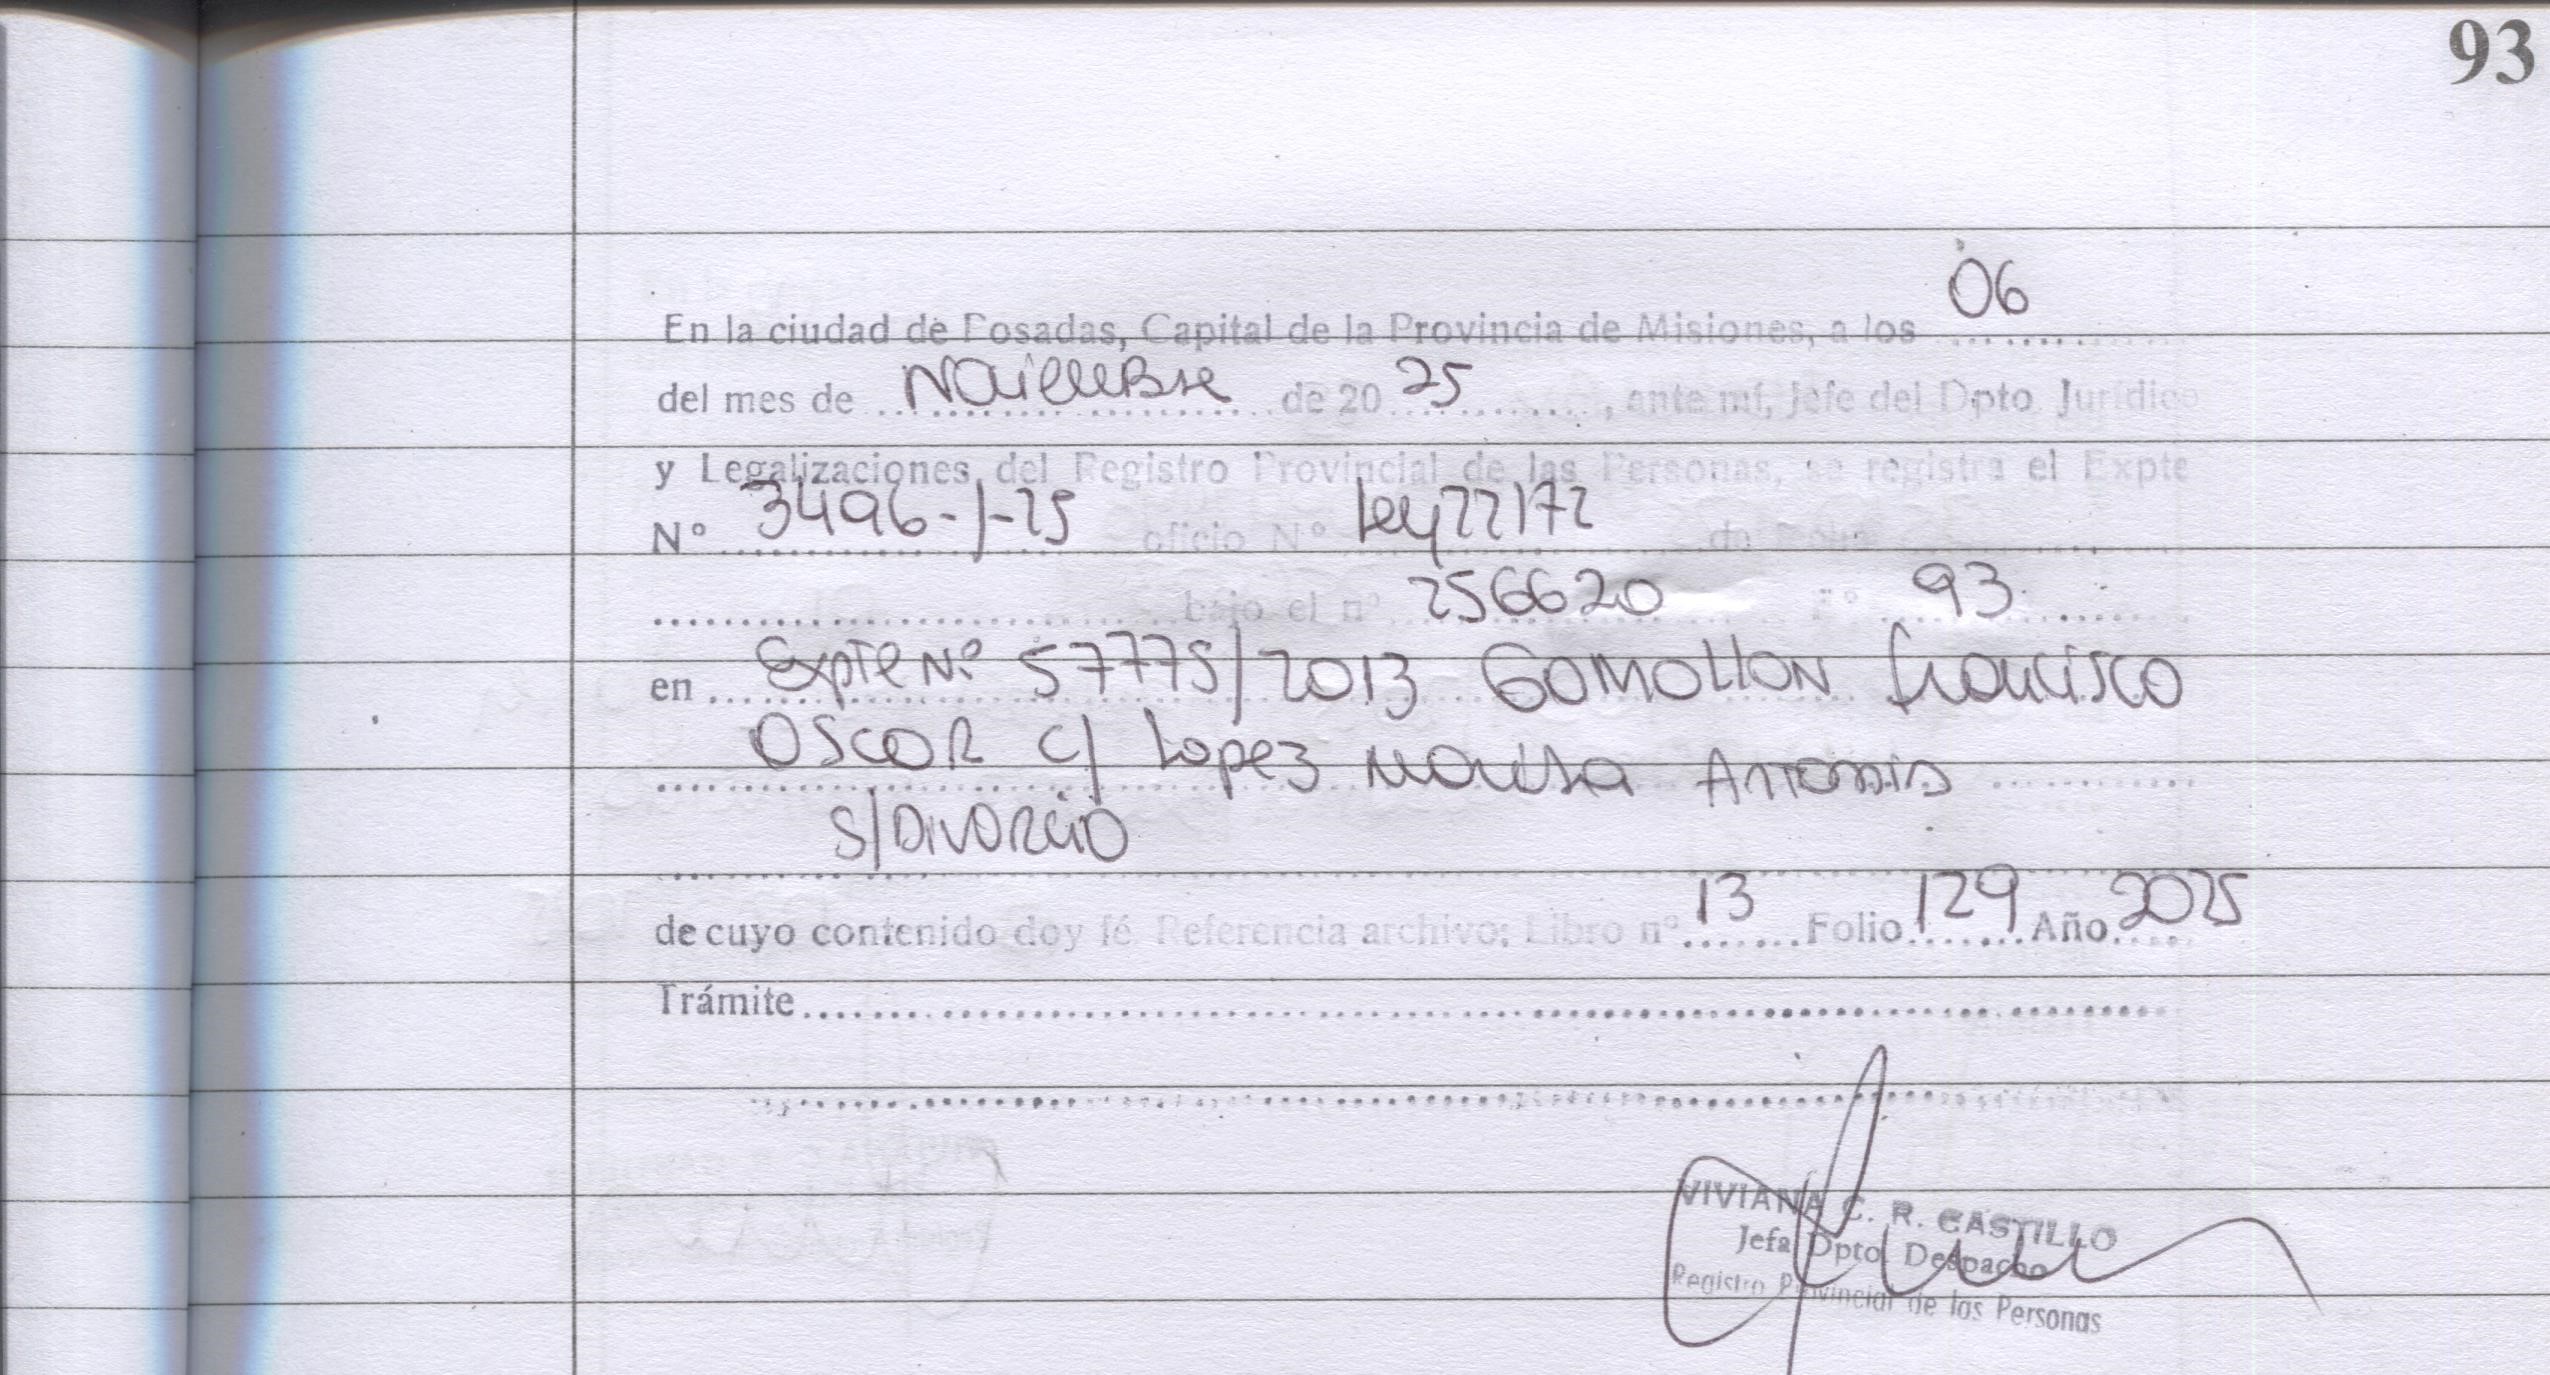 93
En la ciudad de Posadas, Capital de la Provincia de Misiones, a los 06
del mes de Noviembre de 20 25, ante mí, Jefe del Dpto. Jurídico
y Legalizaciones del Registro Provincial de las Personas, se registra el Expte
Nº 3496-J-25 oficio Nº Ley 22172 de
bajo el nº 256620 Fº 93
en Expte Nº 57775/2013 GOMOLLON Francisco
OSCAR C/ Lopez Antonia
S/DIVORCIO
de cuyo contenido doy fé. Referencia archivo: Libro nº 13 Folio 129 Año 2025
Trámite
VIVIANA C. R. CASTILLO
Jefa Dpto. Despacho
Registro Provincial de las Personas